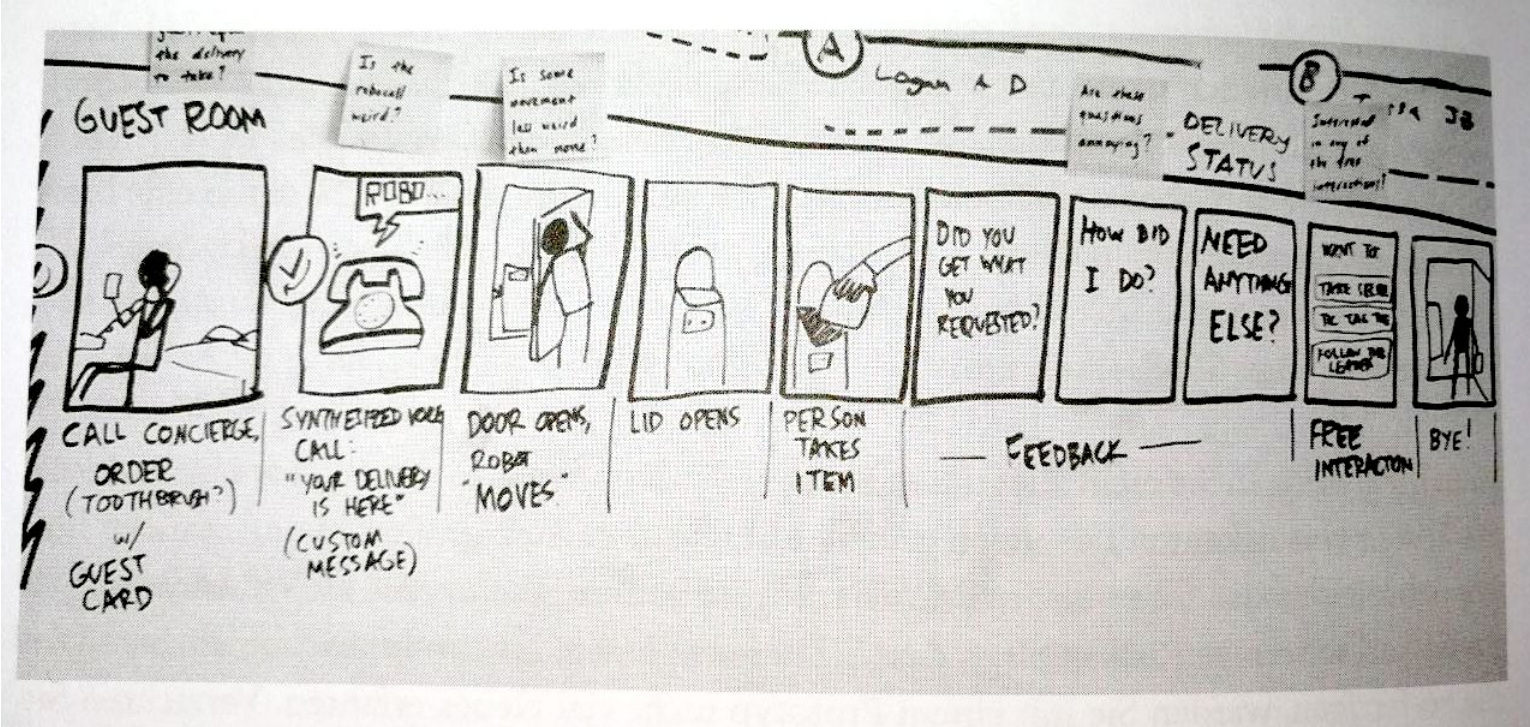 the delivery
to take?
Is the
robocall
weird?
Is some
movement
less weird
than none?
A
Logan & D
Are these
questions
annoying?
DELIVERY
STATUS
B
JB
Interested
in any of
the free
interactions?
GUEST ROOM
ROBO...
DID YOU
GET WHAT
YOU
REQUESTED?
HOW DID
I DO?
NEED
ANYTHING
ELSE?
WANT TO:
TAKE SELFIE
TIC TAC TOE
FOLLOW THE
LEADER
CALL CONCIERGE,
ORDER
(TOOTHBRUSH?)
w/
GUEST
CARD
SYNTHESIZED VOICE
CALL:
"YOUR DELIVERY
IS HERE"
(CUSTOM
MESSAGE)
DOOR OPENS,
ROBOT
"MOVES"
LID OPENS
PERSON
TAKES
ITEM
— FEEDBACK —
FREE
INTERACTION
BYE!